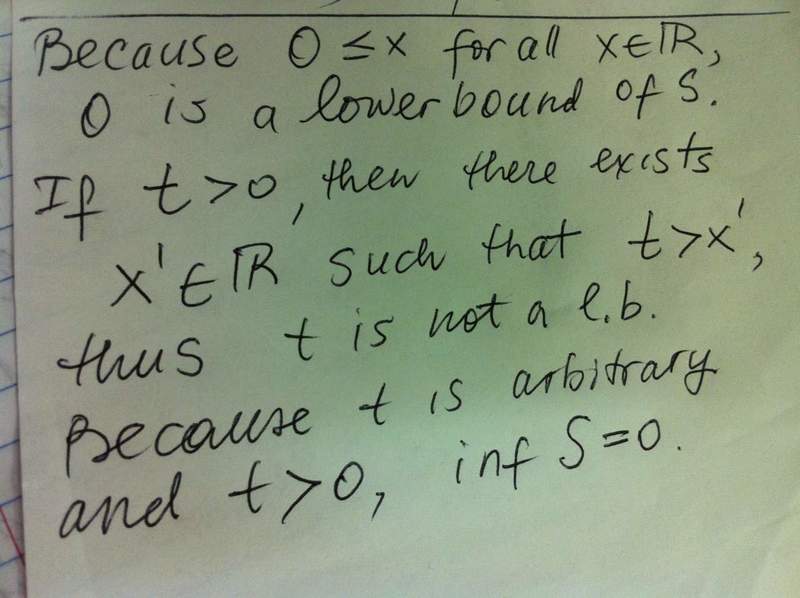 Because 0 ≤ x for all x∈ℝ,
0 is a lower bound of S.
If t > 0, then there exists
x' ∈ ℝ such that t > x',
thus t is not a l.b.
Because t is arbitrary
and t > 0, inf S = 0.